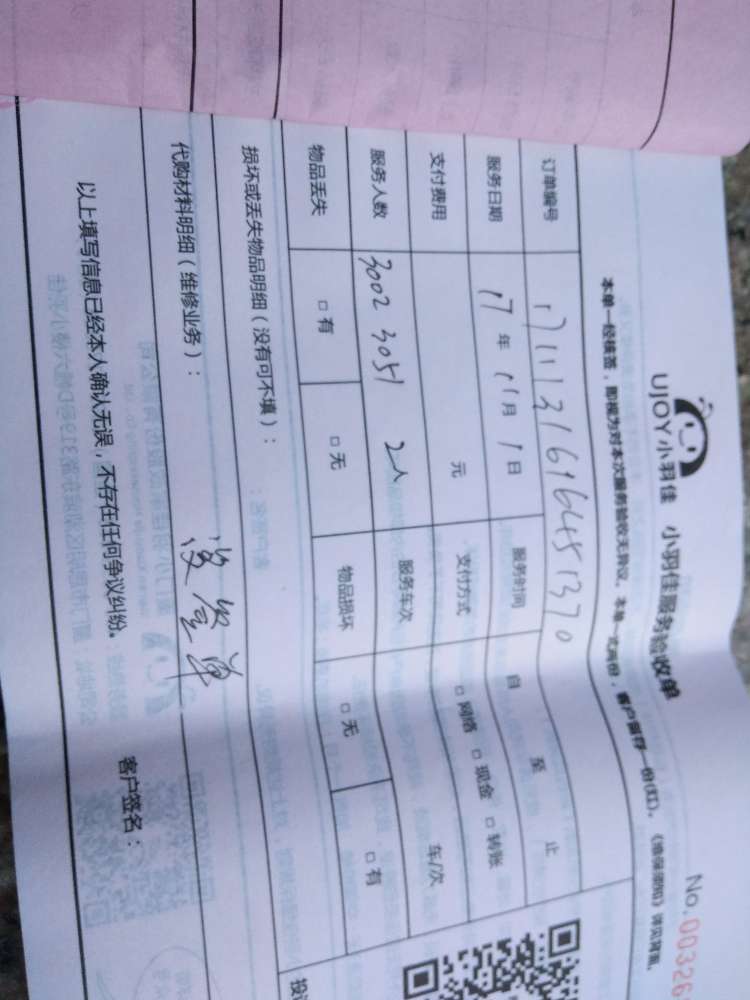 UJOY小羽佳 小羽佳服务验收单
No.00326
本单一经核签，即视为对本次服务验收无异议。本单一式两份，客户留存一份(红)。《维保须知》详见背面。
订单编号 1711131616451370
服务日期 17年11月1日 服务时间 自 至 止
支付费用 元 支付方式 □网络 □现金 □转账
服务人数 3002 3051 2人 服务车次 车/次
物品丢失 □有 □无 物品损坏 □无 □有
损坏或丢失物品明细（没有可不填）：
代购材料明细（维修业务）：
以上填写信息已经本人确认无误，不存在任何争议纠纷。 客户签名：